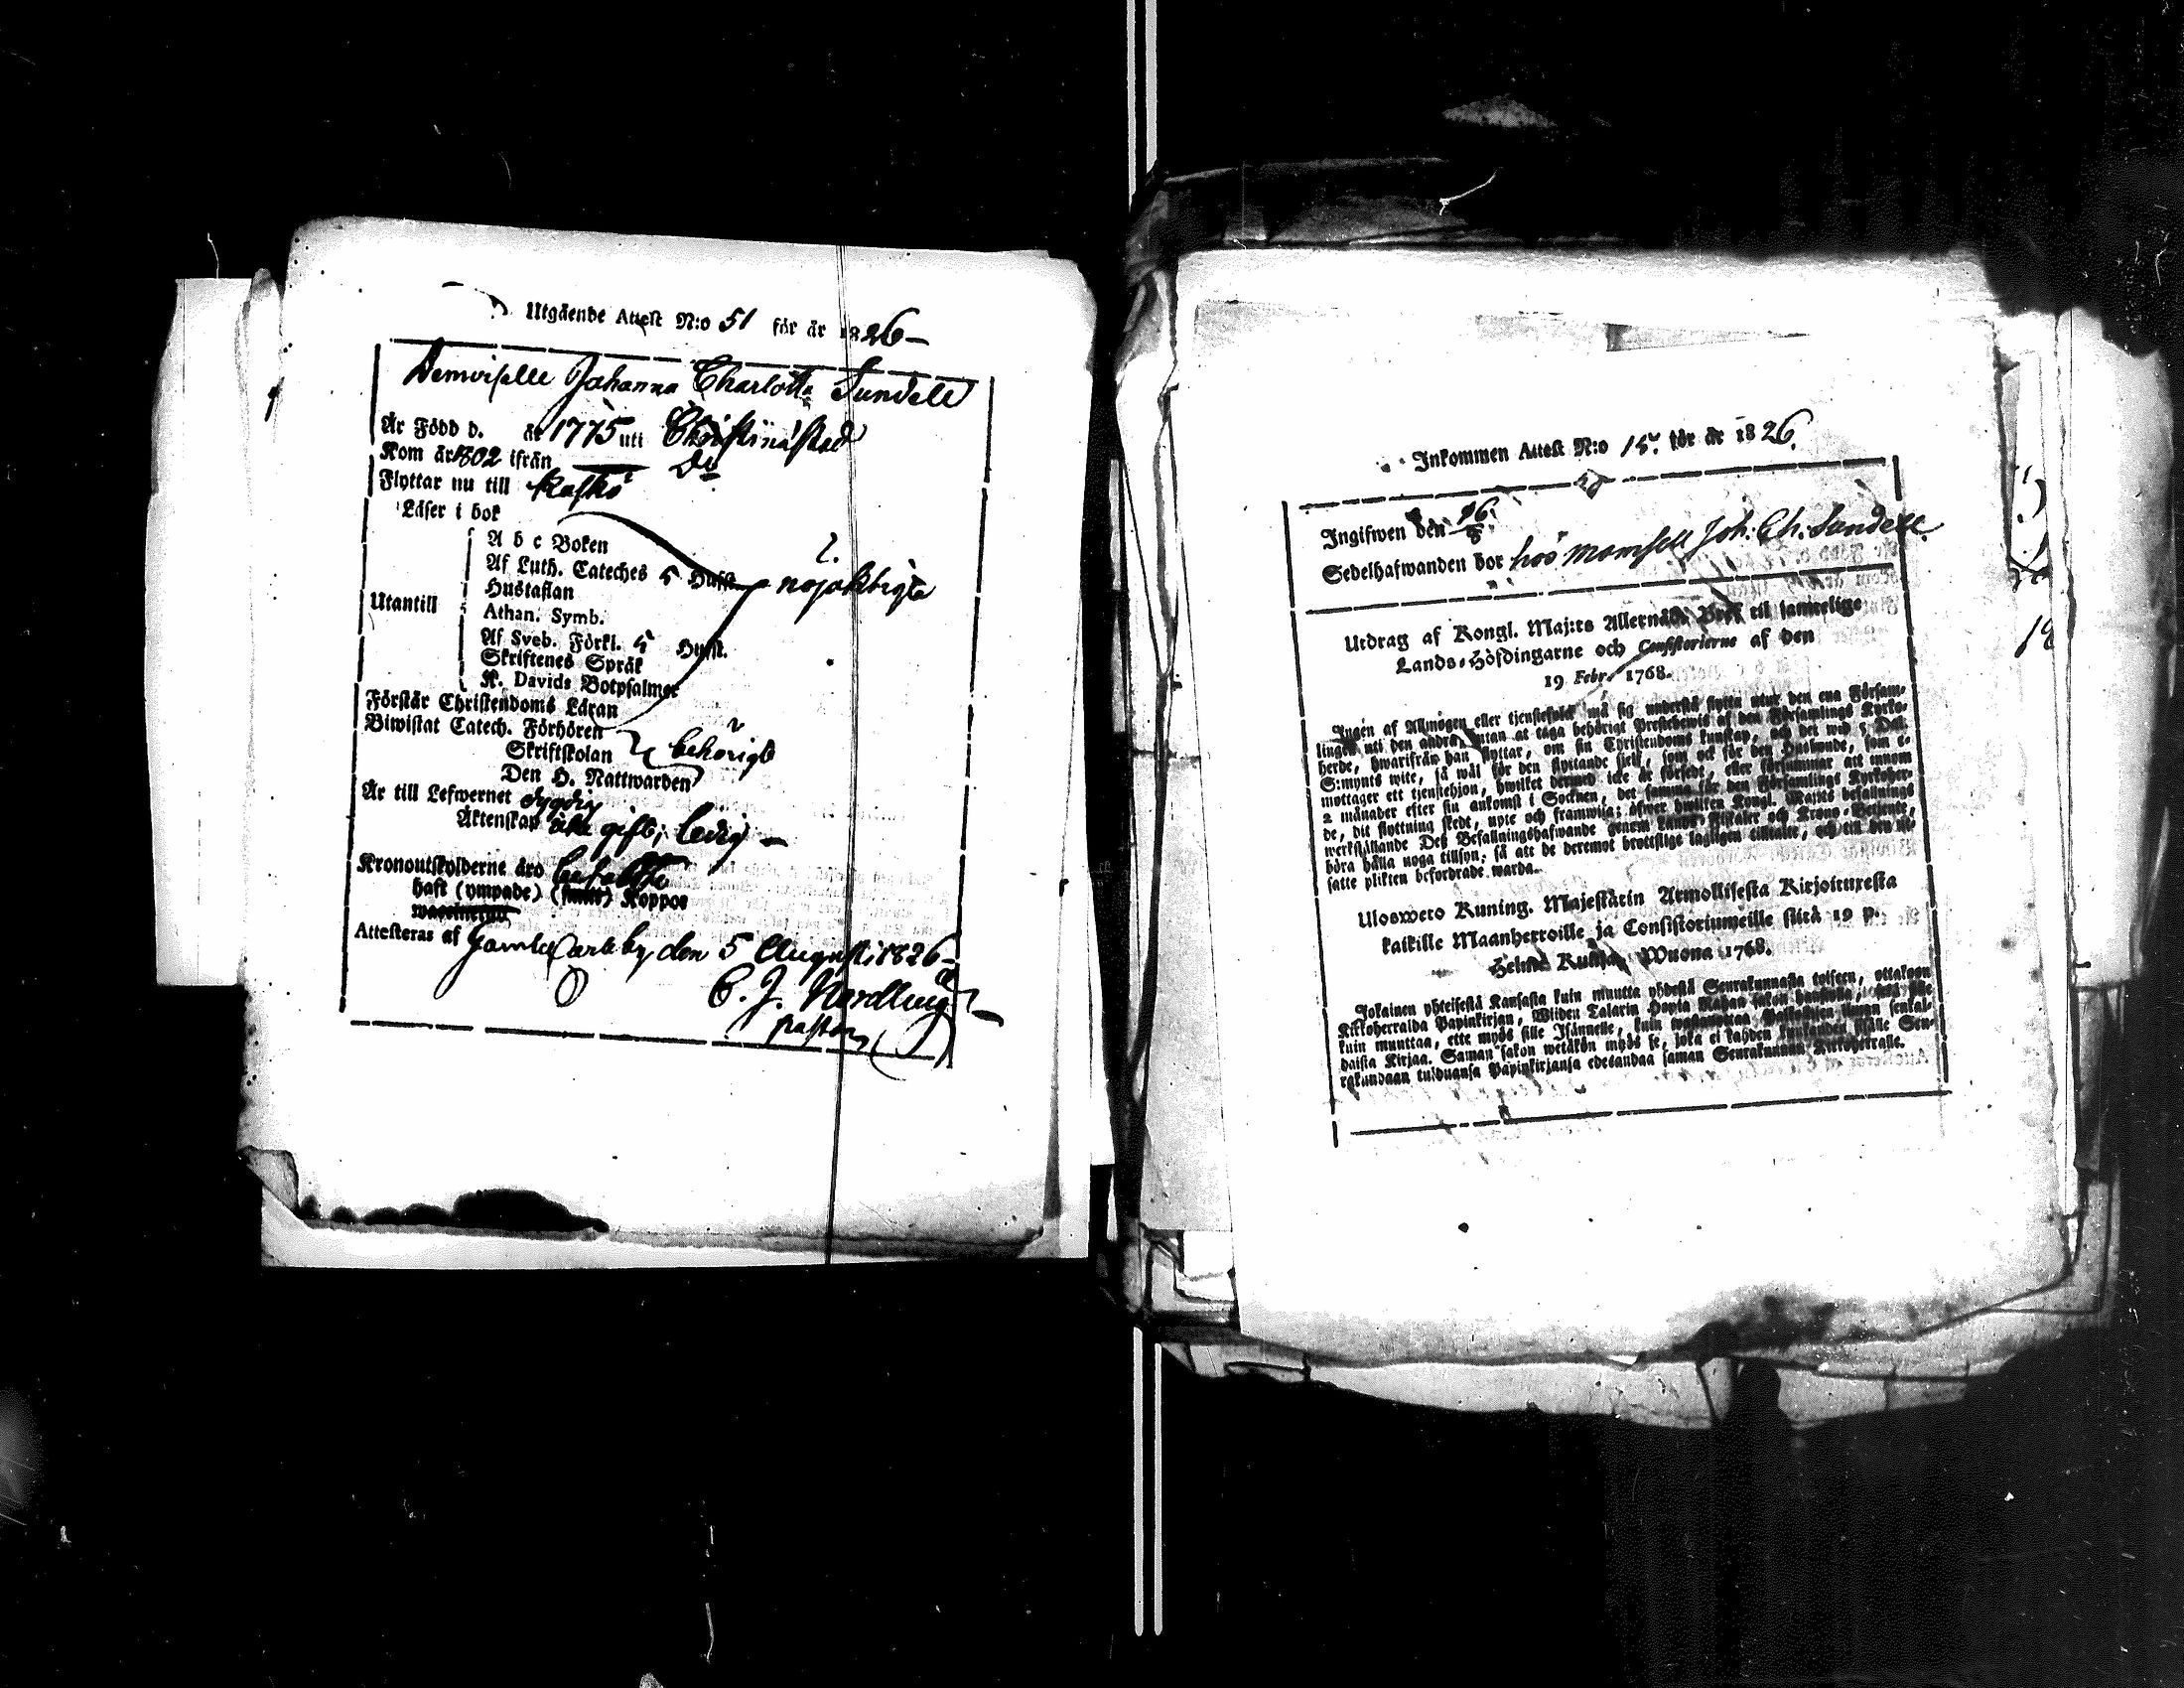 Utgående Attest N:o 51 för år 1826
Demoiselle Johanna Charlotta Sundell
Är Född d. år 1775 uti Christinæstad
Kom år 1802 ifrån Do
Flyttar nu till Kaskö
Läser i bok
A b c Boken
Af Luth. Cateches 5 Hufst.
nöjaktigt
Hustaflan
Utantill
Athan. Symb.
Af Sveb. Förkl. 5 Hufst.
Skriftenes Språk
K. Davids Botpsalmer
Förstår Christendoms Läran
Biwistat Catech. Förhören
Skriftskolan behörigt
Den H. Nattwarden
Är till Lefwernet dygdig
Äktenskap icke gift; ledig
Kronoutskylderne äro betalte
haft (ympade) Koppor
Attesteras af Gamlacarleby den 5 Augusti 1826
C. J. Nordling
pastor
Inkommen Attest N:o 15. för år 1826.
Ingifwen den 16/8
Sedelhafwanden bor hos Mamsell Joh: Ch: Sundell.
Utdrag af Kongl. Maj:ts Allernåd. Bref til samtelige
Lands-Höfdingarne och Consistorierne af den
19 Febr. 1768.
Ingen af Allmogen eller tjenstefolk må sig understå flytta utur den ena Församlingen uti den andra, utan at taga behörigt Prestebewis af den Församlings Kyrkoherde, hwarifrån han flyttar, om sin Christendoms kunskap, och det wid 5 Dal.
S:mynts wite, så wäl för den flyttande sjelf, som ock för den Husbonde, som emottager ett tjenstehjon, hwilket dermed icke är försedt, eller försummar att innom
2 månader efter sin ankomst i Socknen, det samma för den Församlings Kyrkoherde, dit flyttning skedt, upte och framwisa; öfwer hwilken Kongl. Maj:ts befallnings
werkställande Dess Befallningshafwande genom Lands-Fiskaler och Krono-Betjente,
böra hålla noga tillsyn, så att de deremot brottslige lagligen tilltalte, och till den utsatte plikten befordrade warda.
Uloswero Kuning. Majestätin Armollisesta Kirjoituxesta
kaikille Maanherroille ja Consistoriumeille siitä 19 p.
Helmi Kuusa, Wuona 1768.
Jokainen yhteisestä Kansasta kuin muutta yhdestä Seurakunnasta toiseen, ottakoon
Kirkoherralda Papinkirjan, Wiiden Talarin Hopia Rahan sakon haastolla, niin sille
kuin muuttaa, ette myös sille Isännelle, kuin wastanottaa Palkollisen ilman senkaldaista Kirjaa. Saman sakon wetäkön myös se, joka ei kahden kuukauden sisälle Seurakundaan tulduansa Papinkirjansa edesandaa saman Seurakunnan Kirkoherralle.